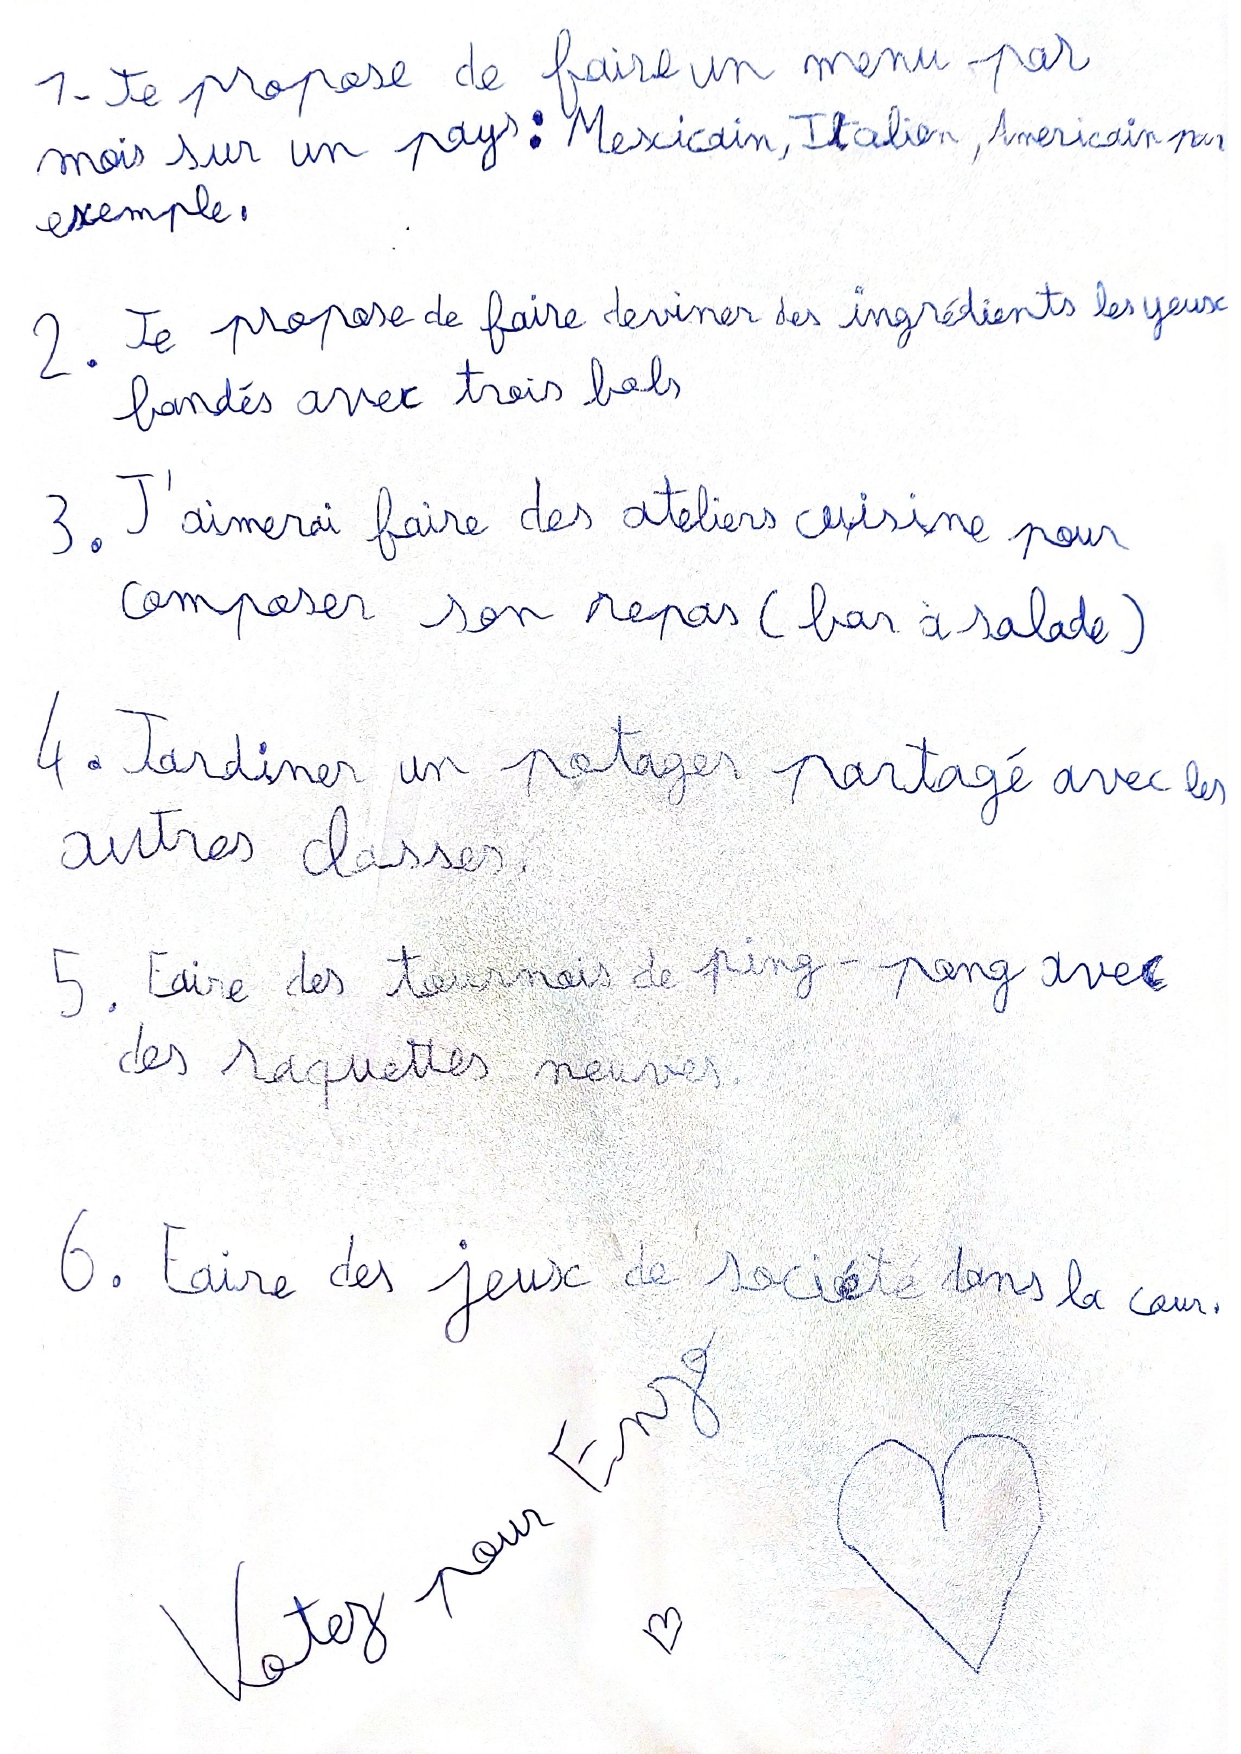 1- Je propose de faire un menu par
mois sur un pays: Mexicain, Italien, Americain par
exemple.
2. Je propose de faire deviner des ingrédients les yeux
bandés avec trois bols
3. J'aimerai faire des ateliers cuisine pour
composer son repas (bar à salade)
4. Jardiner un potager partagé avec les
autres classes.
5. Faire des tournois de ping-pong avec
des raquettes neuves.
6. Faire des jeux de société dans la cour.
Votez pour Enzo